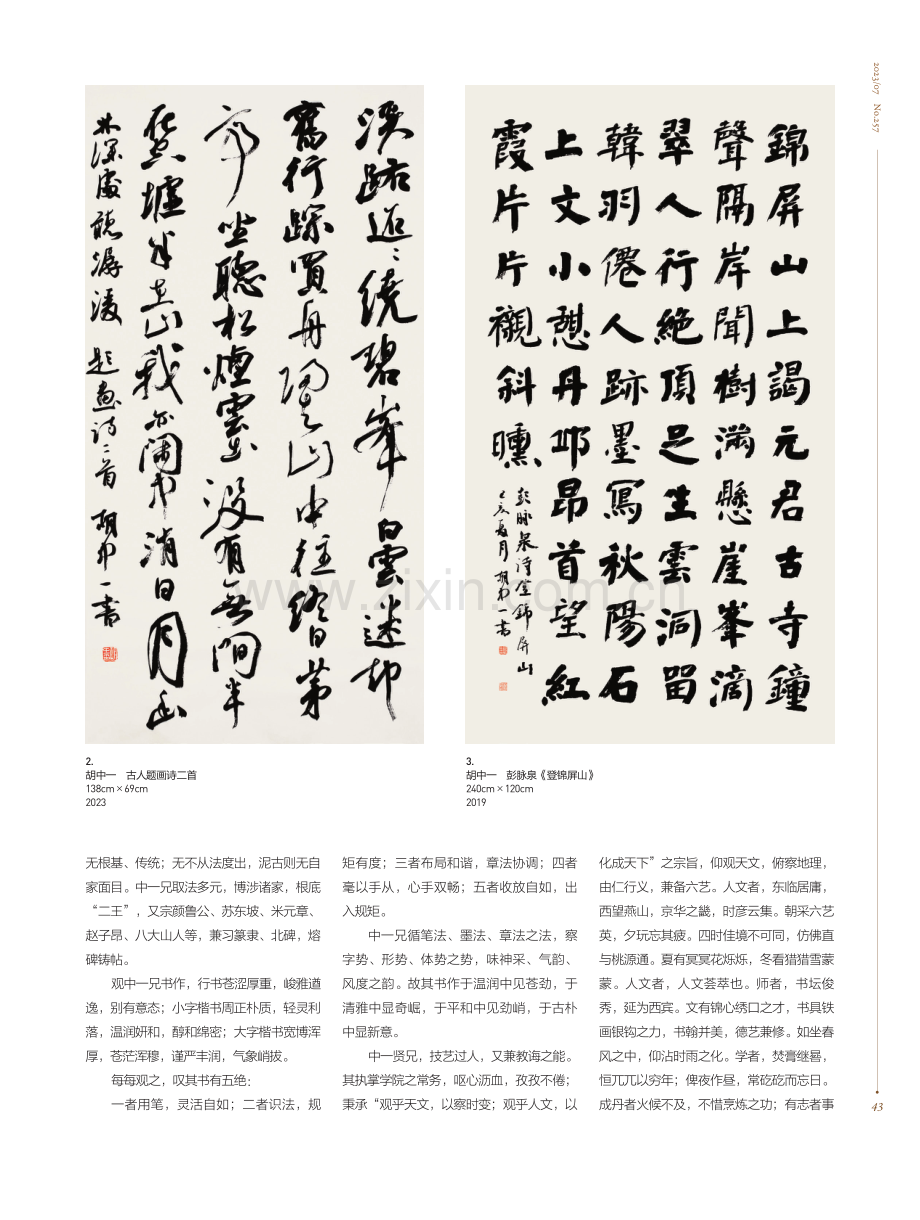 2023/07 No.257
溪路迢〻繞碧峯白雲迷却
舊行蹤買舟歸去山中住終日茅
亭坐聽松煙雲出没有無間半
在空墟半在山我亦闲中消日月幽
林深處聽潺湲 题画诗二首 胡中一書
錦屏山上謁元君古寺鐘
聲隔岸聞樹滿懸崖峯滴
翠人行絶頂足生雲洞留
韓羽僊人跡墨寫秋陽石
上文小憩丹邱昂首望紅
霞片片襯斜曛
彭脉泉诗登錦屏山
己亥夏月胡中一書
www.zixin.com.cn
2.
胡中一 古人题画诗二首
138cm×69cm
2023
3.
胡中一 彭脉泉《登锦屏山》
240cm×120cm
2019
无根基、传统；无不从法度出，泥古则无自
家面目。中一兄取法多元，博涉诸家，根底
“二王”，又宗颜鲁公、苏东坡、米元章、
赵子昂、八大山人等，兼习篆隶、北碑，熔
碑铸帖。
观中一兄书作，行书苍涩厚重，峻雅遒
逸，别有意态；小字楷书周正朴质，轻灵利
落，温润妍和，醇和绵密；大字楷书宽博浑
厚，苍茫浑穆，谨严丰润，气象峭拔。
每每观之，叹其书有五绝：
一者用笔，灵活自如；二者识法，规
矩有度；三者布局和谐，章法协调；四者
毫以手从，心手双畅；五者收放自如，出
入规矩。
中一兄循笔法、墨法、章法之法，察
字势、形势、体势之势，味神采、气韵、
风度之韵。故其书作于温润中见苍劲，于
清雅中显奇崛，于平和中见劲峭，于古朴
中显新意。
中一贤兄，技艺过人，又兼教诲之能。
其执掌学院之常务，呕心沥血，孜孜不倦；
秉承“观乎天文，以察时变；观乎人文，以
化成天下”之宗旨，仰观天文，俯察地理，
由仁行义，兼备六艺。人文者，东临居庸，
西望燕山，京华之畿，时彦云集。朝采六艺
英，夕玩忘其疲。四时佳境不可同，仿佛直
与桃源通。夏有冥冥花烁烁，冬看猎猎雪蒙
蒙。人文者，人文荟萃也。师者，书坛俊
秀，延为西宾。文有锦心绣口之才，书具铁
画银钩之力，书翰并美，德艺兼修。如坐春
风之中，仰沾时雨之化。学者，焚膏继晷，
恒兀兀以穷年；俾夜作昼，常矻矻而忘日。
成丹者火候不及，不惜烹炼之功；有志者事
43